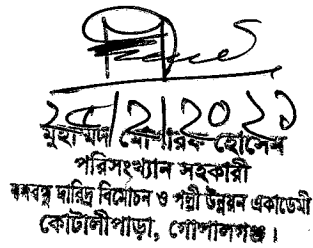 ২৫/২/২০২১
মুহাম্মদ মোবারক হোসেন
পরিসংখ্যান সহকারী
বঙ্গবন্ধু দারিদ্র বিমোচন ও পল্লী উন্নয়ন একাডেমী
কোটালীপাড়া, গোপালগঞ্জ।